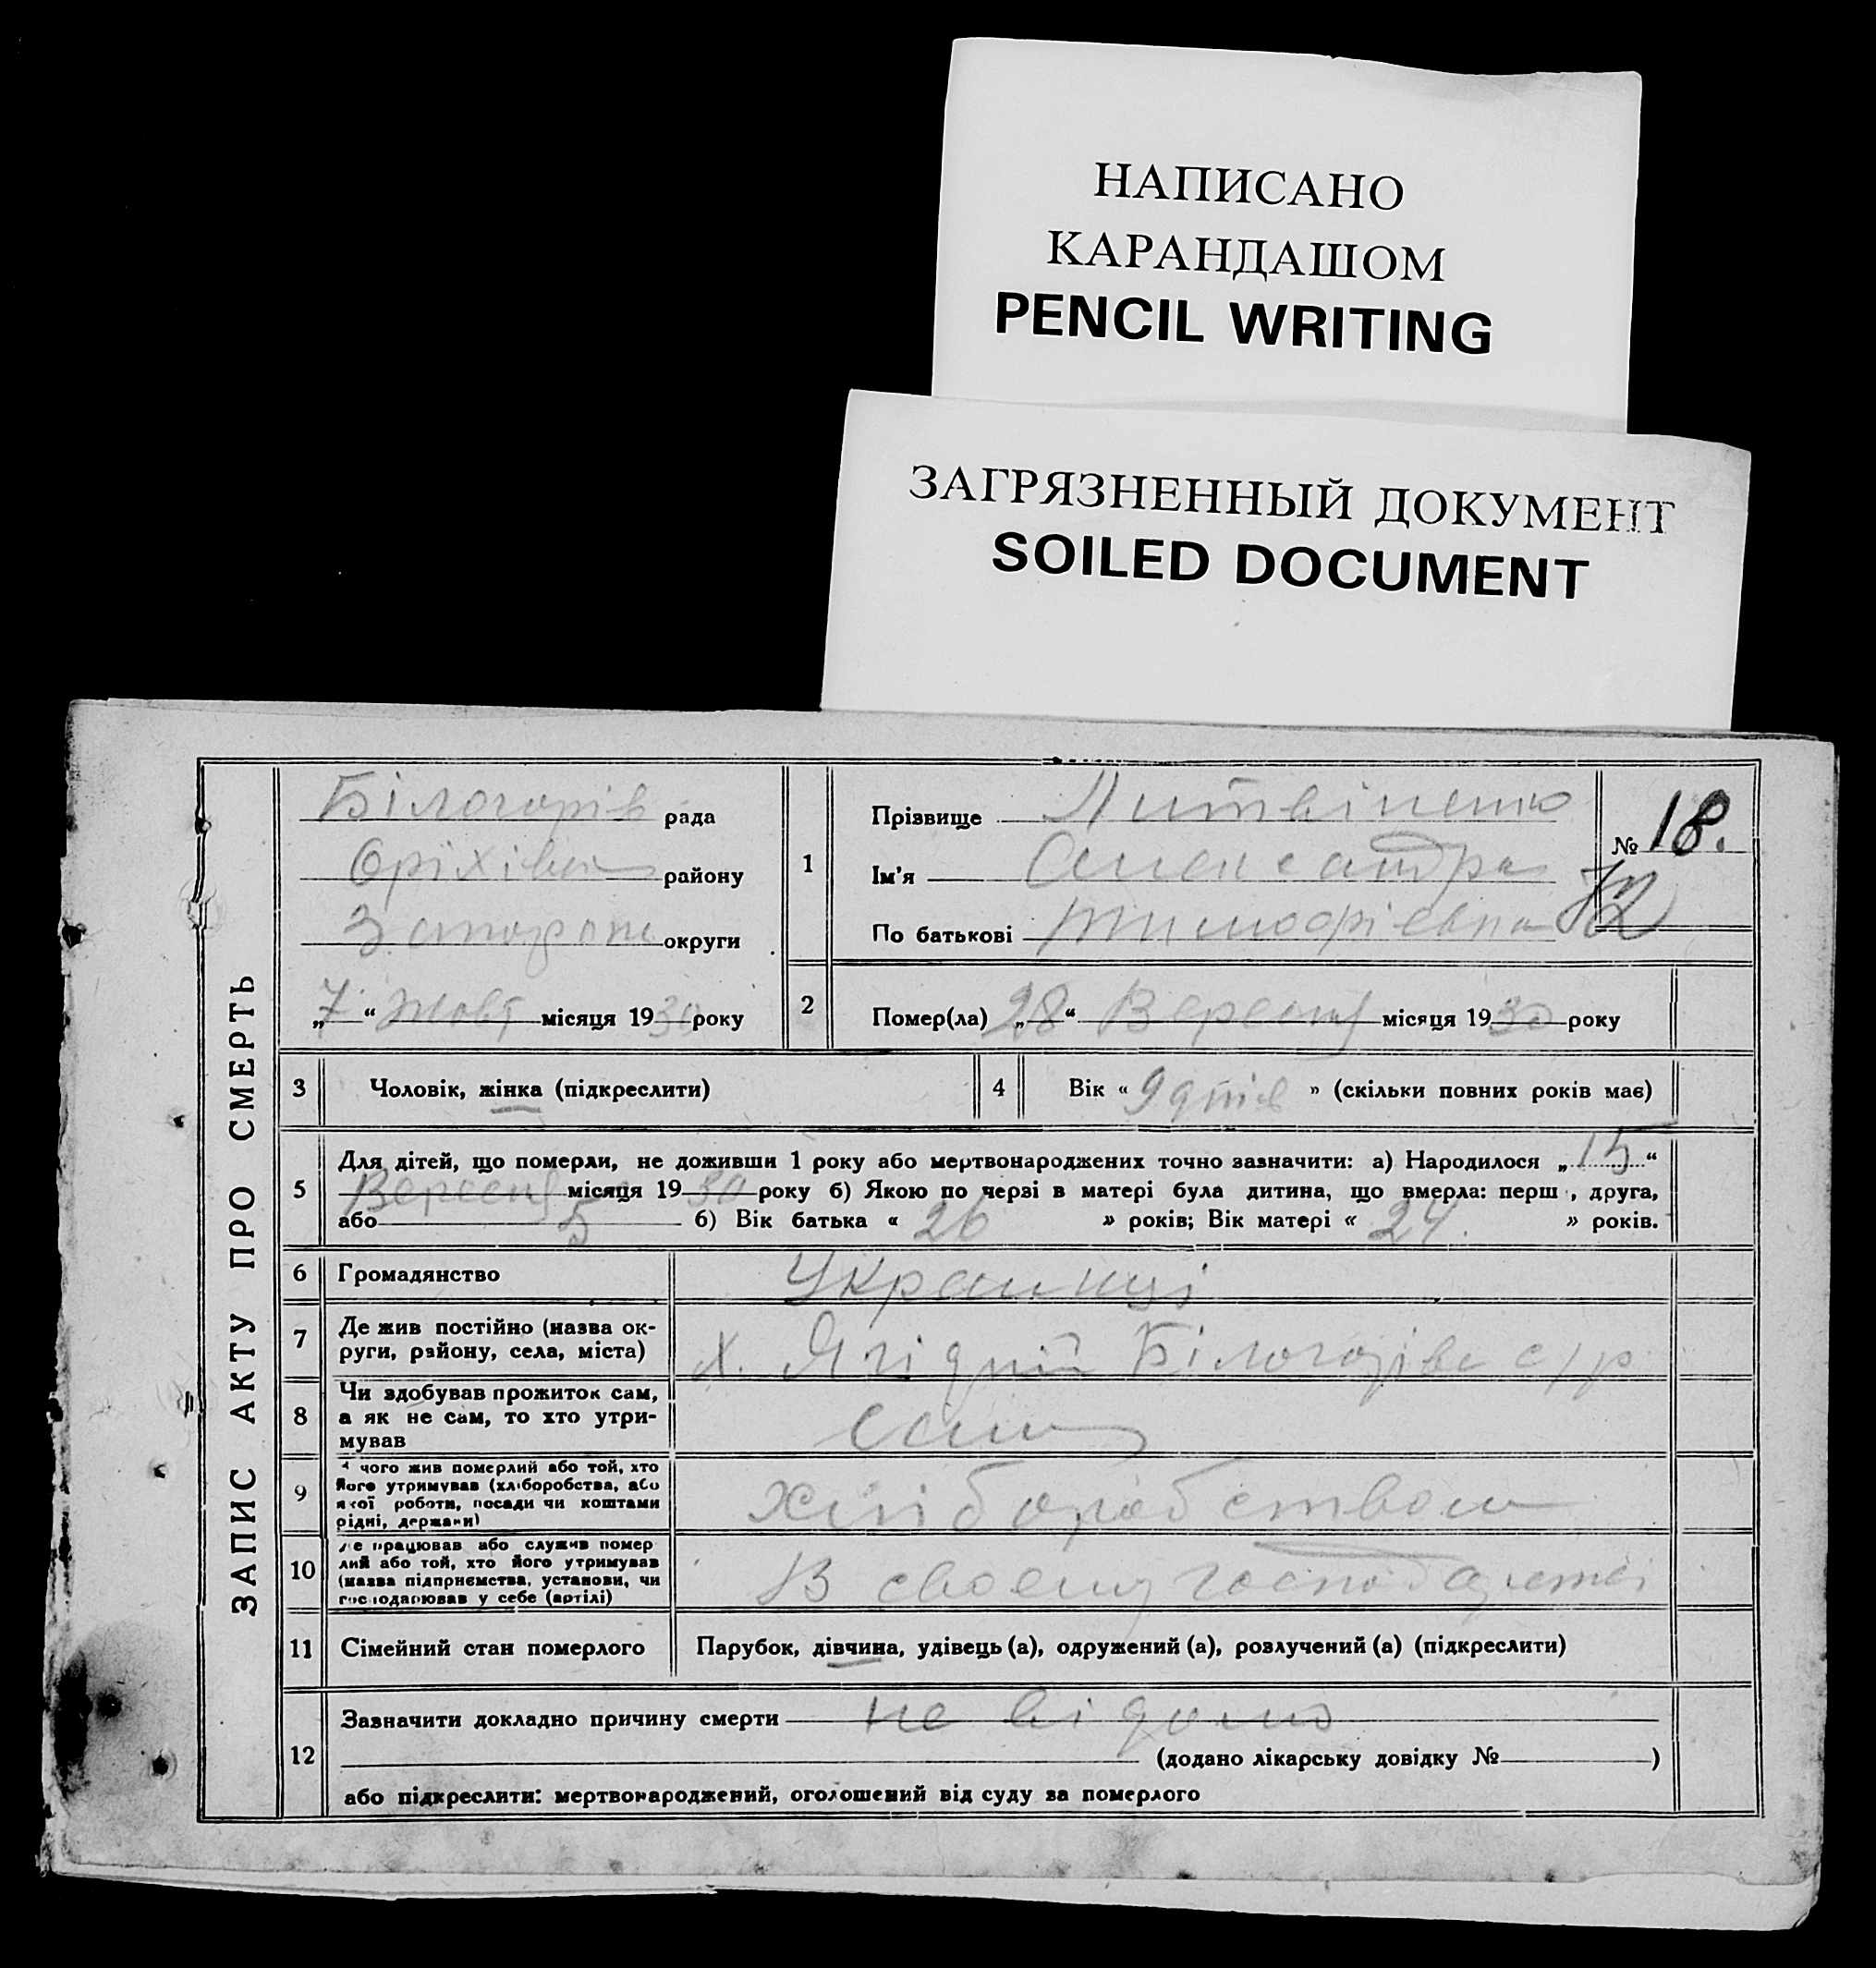 НАПИСАНО
КАРАНДАШОМ
PENCIL WRITING
ЗАГРЯЗНЕННЫЙ ДОКУМЕНТ
SOILED DOCUMENT
ЗАПИС АКТУ ПРО СМЕРТЬ
Білогорів рада
Оріхівск району
Запоріж округи
„7“ Жовт місяця 1930 року
1
Прізвище Литвіненко
Ім'я Александра
По батькові Тимофієвна
№ 18.
72
2
Помер(ла) „28“ Вересня місяця 1930 року
3 Чоловік, жінка (підкреслити)
4 Вік « 9 днів » (скільки повних років має)
5
Для дітей, що померли, не доживши 1 року або мертвонароджених точно зазначити: а) Народилося „15“
Вересня місяця 1930 року б) Якою по черзі в матері була дитина, що вмерла: перш , друга,
або 5 б) Вік батька « 26 » років; Вік матері « 24. » років.
6 Громадянство Украинці
7 Де жив постійно (назва ок-
руги, району, села, міста)
х. Ягідний Білогорівс с/р
8 Чи здобував прожиток сам,
а як не сам, то хто утри-
мував
9 чого жив померлий або той, хто
його утримував (хліборобства, або
якої роботи, посади чи коштами
рідні, держави)
хліборобством
10 Де працював або служив помер
лий або той, хто його утримував
(назва підприємства, установи, чи
господарював у себе (артілі)
В своему господарстві
11 Сімейний стан померлого Парубок, дівчина, удівець (а), одружений (а), розлучений (а) (підкреслити)
12
Зазначити докладно причину смерти не відомо
(додано лікарську довідку № )
або підкреслити: мертвонароджений, оголошений від суду за померлого